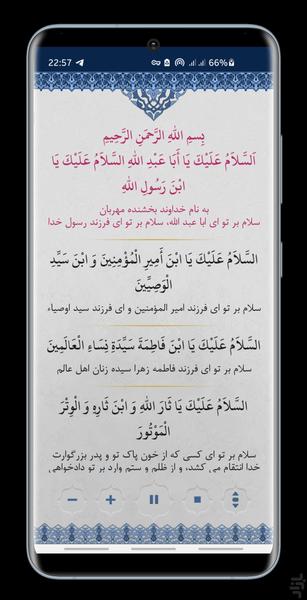 22:57
66%
بِسمِ اللهِ الرَّحمَنِ الرَّحِیمِ
اَلسَّلَامُ عَلَیْكَ یَا أَبَا عَبْدِ اللهِ السَّلَامُ عَلَیْكَ یَا
ابْنَ رَسُولِ اللهِ
به نام خداوند بخشنده مهربان
سلام بر تو ای ابا عبد الله، سلام بر تو ای فرزند رسول خدا
السَّلَامُ عَلَیْكَ یَا ابْنَ أَمِیرِ الْمُؤْمِنِینَ وَ ابْنَ سَیِّدِ
الْوَصِیِّینَ
سلام بر تو ای فرزند امیر المؤمنین و ای فرزند سید اوصیاء
السَّلَامُ عَلَیْكَ یَا ابْنَ فَاطِمَةَ سَیِّدَةِ نِسَاءِ الْعَالَمِینَ
سلام بر تو ای فرزند فاطمه زهرا سیده زنان اهل عالم
السَّلَامُ عَلَیْكَ یَا ثَارَ اللهِ وَ ابْنَ ثَارِهِ وَ الْوِتْرَ
الْمَوْتُورَ
سلام بر تو ای کسی که از خون پاک تو و پدر بزرگوارت
خدا انتقام می کشد، و از ظلم و ستم وارد بر تو دادخواهی
بازار